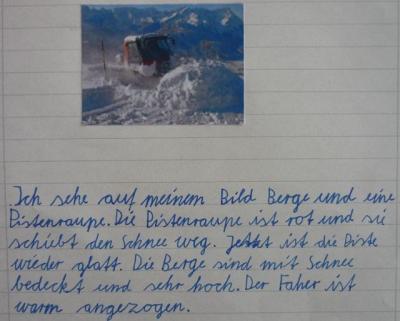 Ich sehe auf meinem Bild Berge und eine
Pistenraupe. Die Pistenraupe ist rot und sie
schiebt den Schnee weg. Jetzt ist die Piste
wieder glatt. Die Berge sind mit Schnee
bedeckt und sehr hoch. Der Faher ist
warm angezogen.